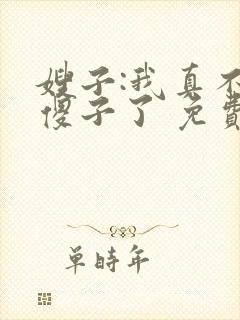 嫂子:我真不
傻子了 免費
单時年